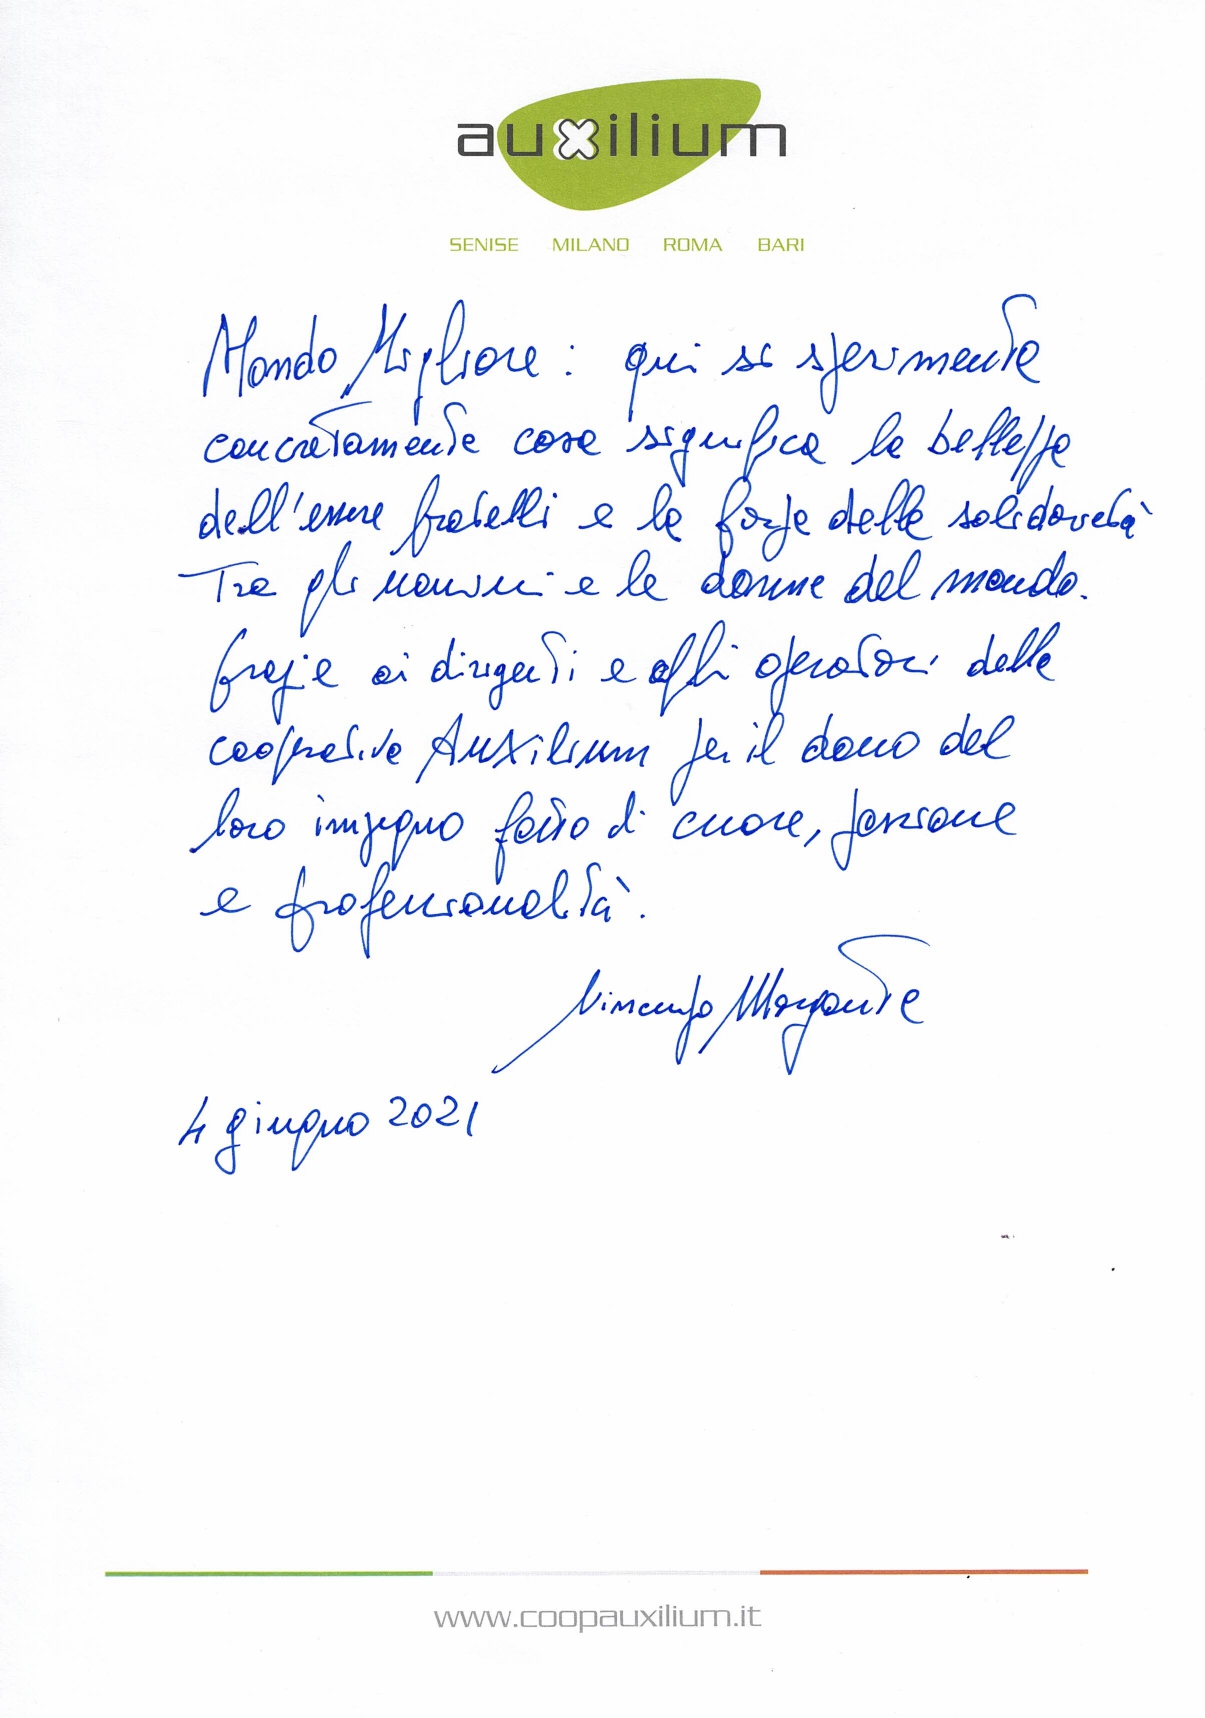 auxilium
SENISE MILANO ROMA BARI
Mondo Migliore: qui si sperimenta
concretamente cosa significa la bellezza
dell'essere fratelli e la forza della solidarietà
tra gli uomini e le donne del mondo.
Grazie ai dirigenti e agli operatori della
cooperativa Auxilium per il dono del
loro impegno fatto di cuore, passione
e professionalità.
Vincenzo Morgante
4 giugno 2021
www.coopauxilium.it